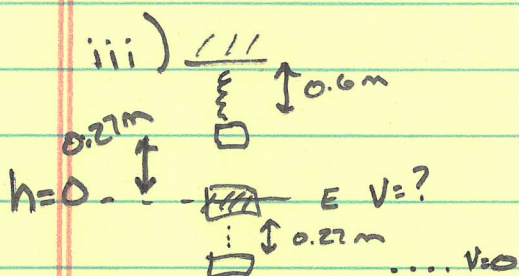 iii)
0.6m
0.27m
h=0 E V=?
0.27m
V=0